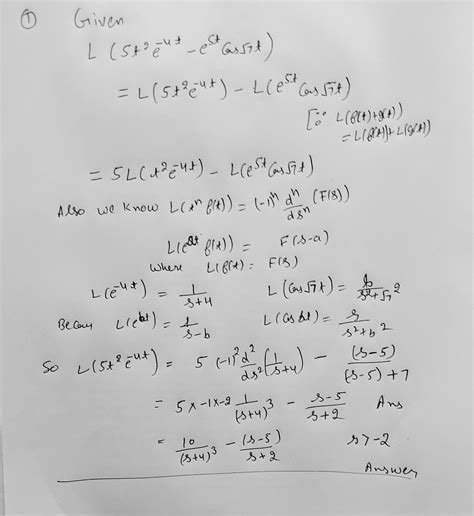 ① Given
L (5t²e⁻⁴ᵗ − e⁵ᵗ Cos√7t)
= L(5t²e⁻⁴ᵗ) − L(e⁵ᵗ Cos√7t)
[∵ L(f(t)+g(t))
= L(f(t))+L(g(t))
= 5L(t²e⁻⁴ᵗ) − L(e⁵ᵗ Cos√7t)
Also we know L(tⁿ f(t)) = (-1)ⁿ dⁿ/dsⁿ (F(s))
L(eᵃᵗ f(t)) = F(s-a)
where L(f(t)) = F(s)
L(e⁻⁴ᵗ) = 1/(s+4) L(Cos√7t) = s/(s²+√7²)
Becau L(eᵇᵗ) = 1/(s-b) L(Cosbt) = s/(s²+b²)
So L(5t²e⁻⁴ᵗ) = 5 (-1)² d²/ds² (1/(s+4)) − (s-5)/((s-5)+7)
= 5x-1x-2 1/(s+4)³ − (s-5)/(s+2) Ans
= 10/(s+4)³ − (s-5)/(s+2) s>-2
Answer